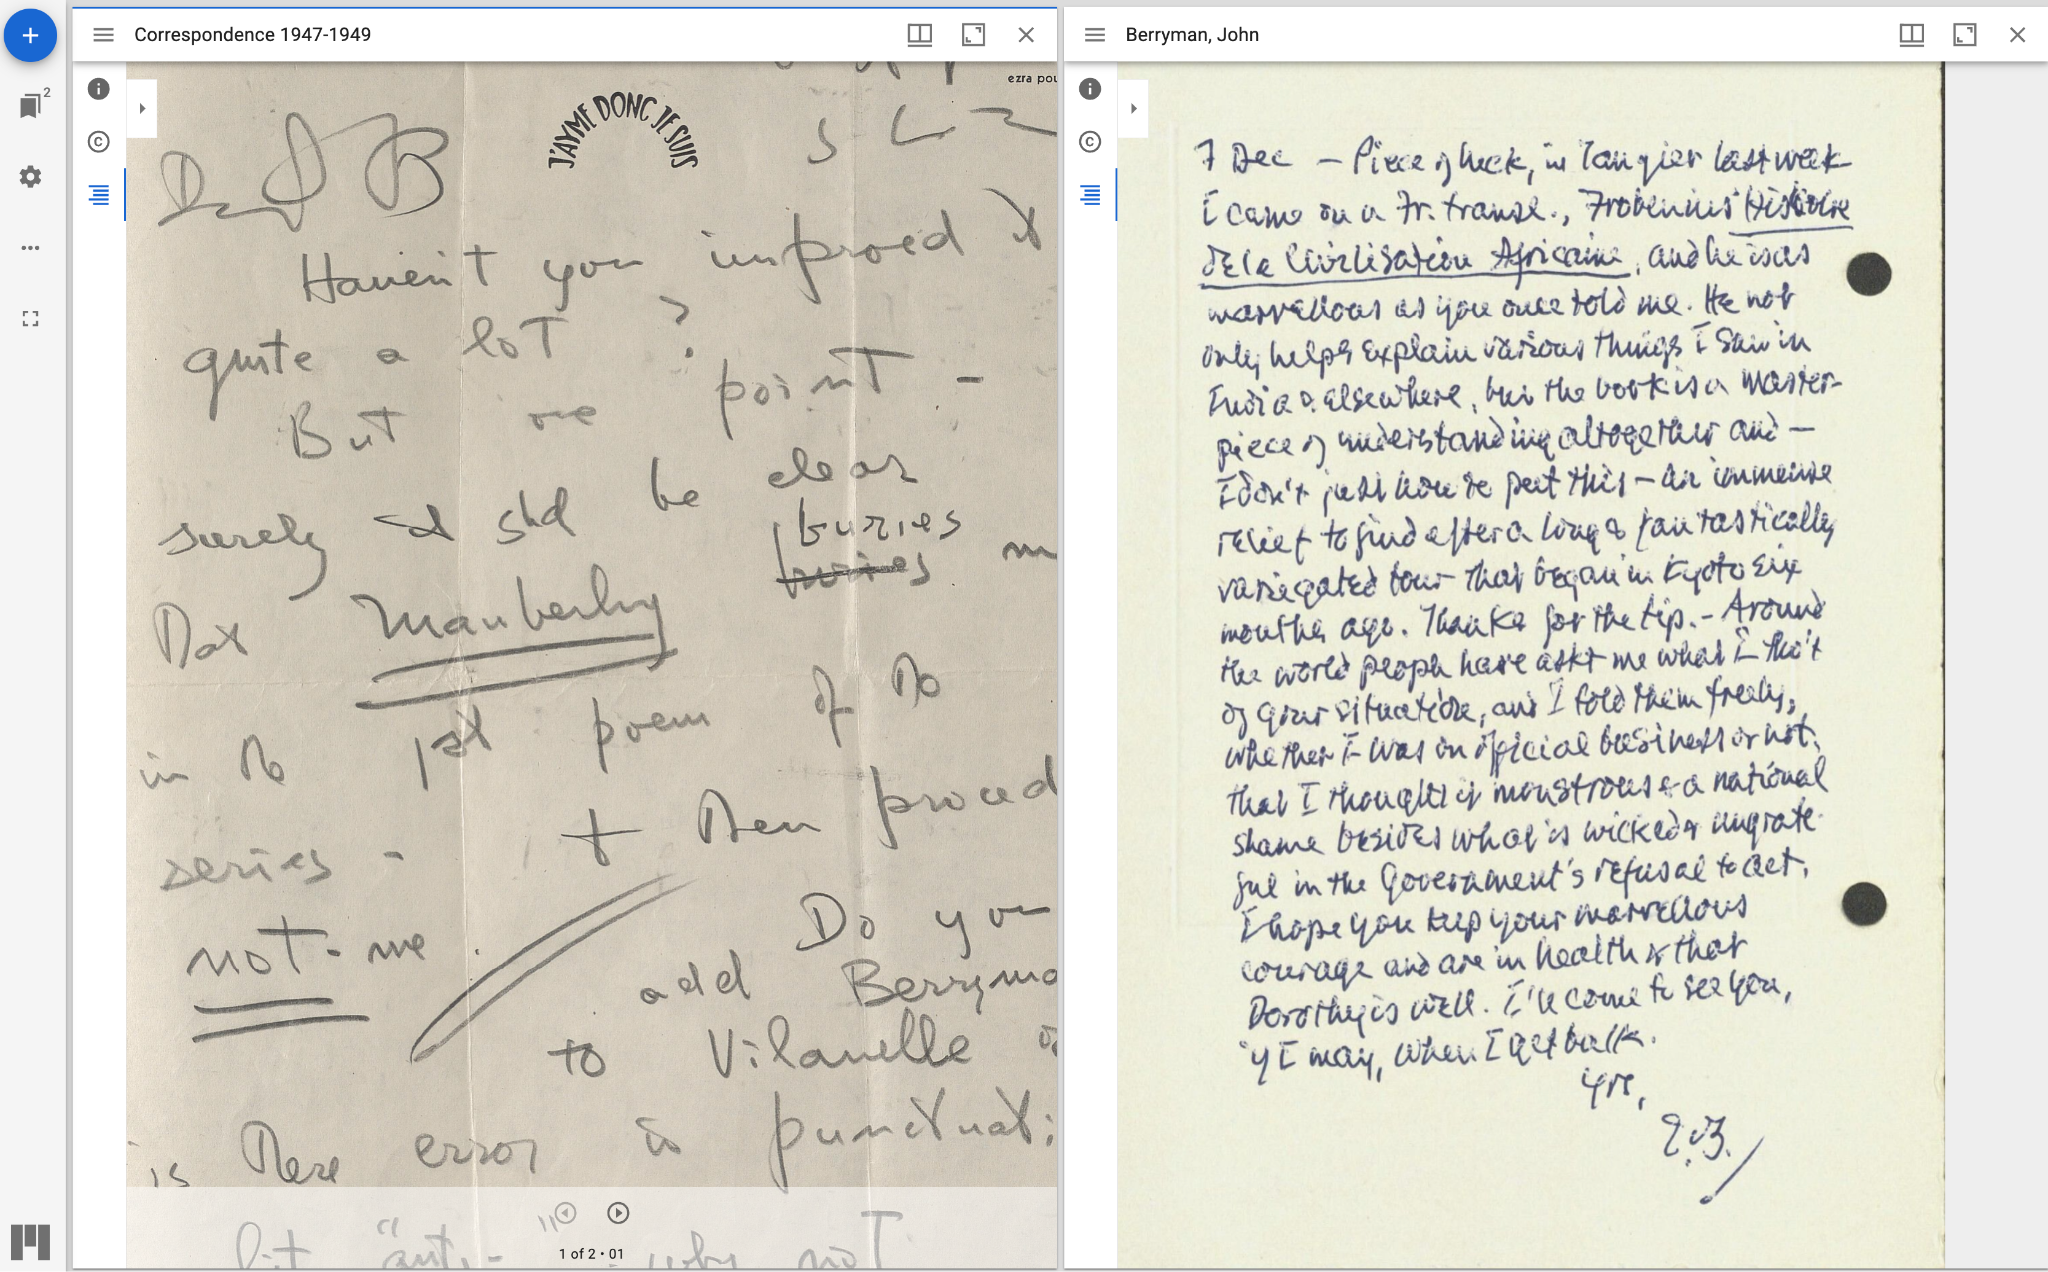 Correspondence 1947-1949
2
ezra pou
J'AYME DONC JE SUIS
D J B
Haven't you improved it
quite a lot ?
But one point -
surely it shd be clear
buries
buries
Dat Mauberley
in the 1st poem of the
series - + then proced
not - me
Do you
add Berryma
to Vilanelle
is there error in punctuati
1 of 2 • 01
but "anti- why not
Berryman, John
7 Dec — Piece of luck, in Tangier last week
I came on a Fr. transl., Frobenius' Histoire
de la Civilisation Africaine, and he is as
marvellous as you once told me. He not
only helps explain various things I saw in
India & elsewhere, but the book is a master-
piece of understanding altogether and —
I don't just how to put this — an immense
relief to find after a long & fantastically
variegated tour that began in Kyoto six
months ago. Thanks for the tip. – Around
the world people have askt me what I tho't
of your situation, and I told them freely,
whether I was on official business or not,
that I thought it monstrous & a national
shame besides what is wicked & ungrate-
ful in the Government's refusal to act.
I hope you keep your marvellous
courage and are in health & that
Dorothy is well. I'll come to see you,
if I may, when I get back.
Yrs,
J.B.